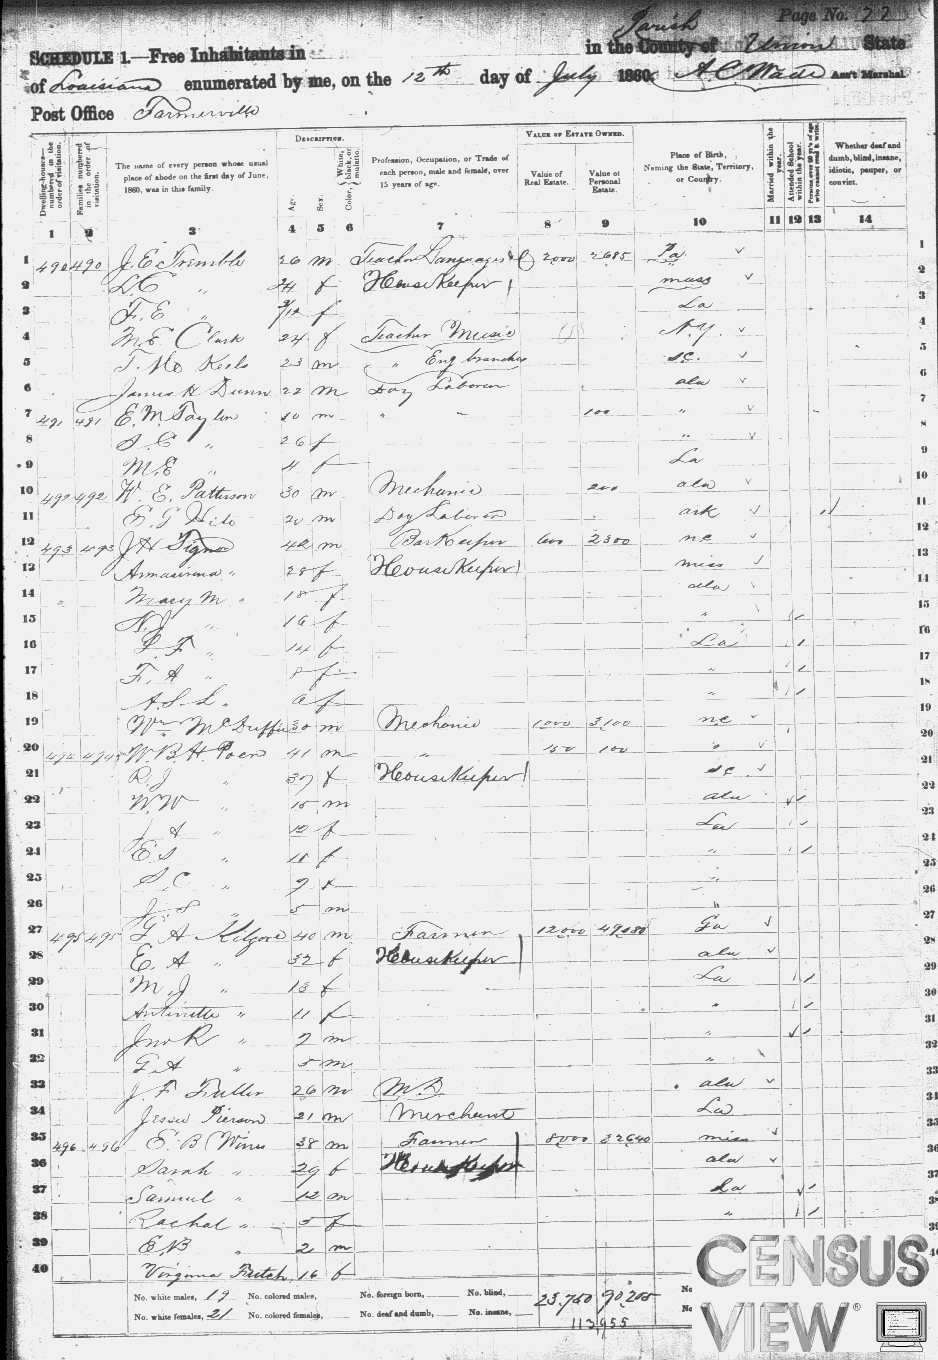 Page No. 77
SCHEDULE 1.—Free Inhabitants in in the County of Parish Union State
of Louisiana enumerated by me, on the 12th day of July 1860. A C Wade Ass't Marshal.
Post Office Farmerville
DESCRIPTION. VALUE OF ESTATE OWNED.
Dwelling-houses—numbered in the order of visitation. Families numbered in the order of visitation. The name of every person whose usual place of abode on the first day of June, 1860, was in this family. Age. Sex. Color, White, black, or mulatto. Profession, Occupation, or Trade of each person, male and female, over 15 years of age. Value of Real Estate. Value of Personal Estate. Place of Birth, Naming the State, Territory, or Country. Married within the year. Attended School within the year. Persons over 20 y'rs of age who cannot read & write. Whether deaf and dumb, blind, insane, idiotic, pauper, or convict.
1 2 3 4 5 6 7 8 9 10 11 12 13 14
1 490 490 J. E. Tremble 26 m Teacher Languages 2000 2685 Pa 1
2 L C " 24 f House Keeper mass 2
3 F. E " 3/12 f La 3
4 M. E Clark 24 f Teacher Music N. Y. 4
5 23 m " Eng branches S.C. 5
6 James H Dunn 22 m Day Laborer ala 6
7 491 491 E. M. Taylor 30 m " " 100 " 7
8 S. C " 26 f " 8
9 M. E " 4 f La 9
10 492 492 W. E. Patterson 30 m Mechanic 200 ala 10
11 20 m Day Laborer ark 11
12 493 493 J H 42 m Bar Keeper 600 2300 n c 12
13 " 28 f House Keeper miss 13
14 Mary M " 18 f ala 14
15 N. J " 16 f " 15
16 " 14 f La 16
17 F. A " 8 f " 17
18 A. S. L " f " 18
19 Wm McDuffie 30 m Mechanic 1000 3,100 n c 19
20 494 494 W. B. H. Poer 41 m " 150 100 " 20
21 R. J " 37 f House Keeper S C 21
22 W. W " 15 m ala 22
23 J A " 12 f La 23
24 E S " 11 f " 24
25 S. C " 7 f " 25
26 J. S " 5 m " 26
27 495 495 G A Kilgore 40 m Farmer 12,000 Ga 27
28 E. A " 32 f House Keeper ala 28
29 M. J " 13 f La 29
30 Antinette " 11 f " 30
31 Jno R " 7 m " 31
32 G. A " 5 m " 32
33 J. F Fuller 26 m M. D ala 33
34 Jesse Pierson 21 m Merchant La 34
35 496 496 E B Wines 38 m Farmer 8000 32640 miss 35
36 Sarah " 29 f House Keeper ala 36
37 Samuel " 12 m La 37
38 Rachal " 5 f " 38
39 E. B " 2 m 39
40 Virginia 16 f
No. white males, 19 No. colored males, No. foreign born, No. blind, 23,750 90,205 No
No. white females, 21 No. colored females, No. deaf and dumb, No. insane, 113,955 No
CENSUS
VIEW®